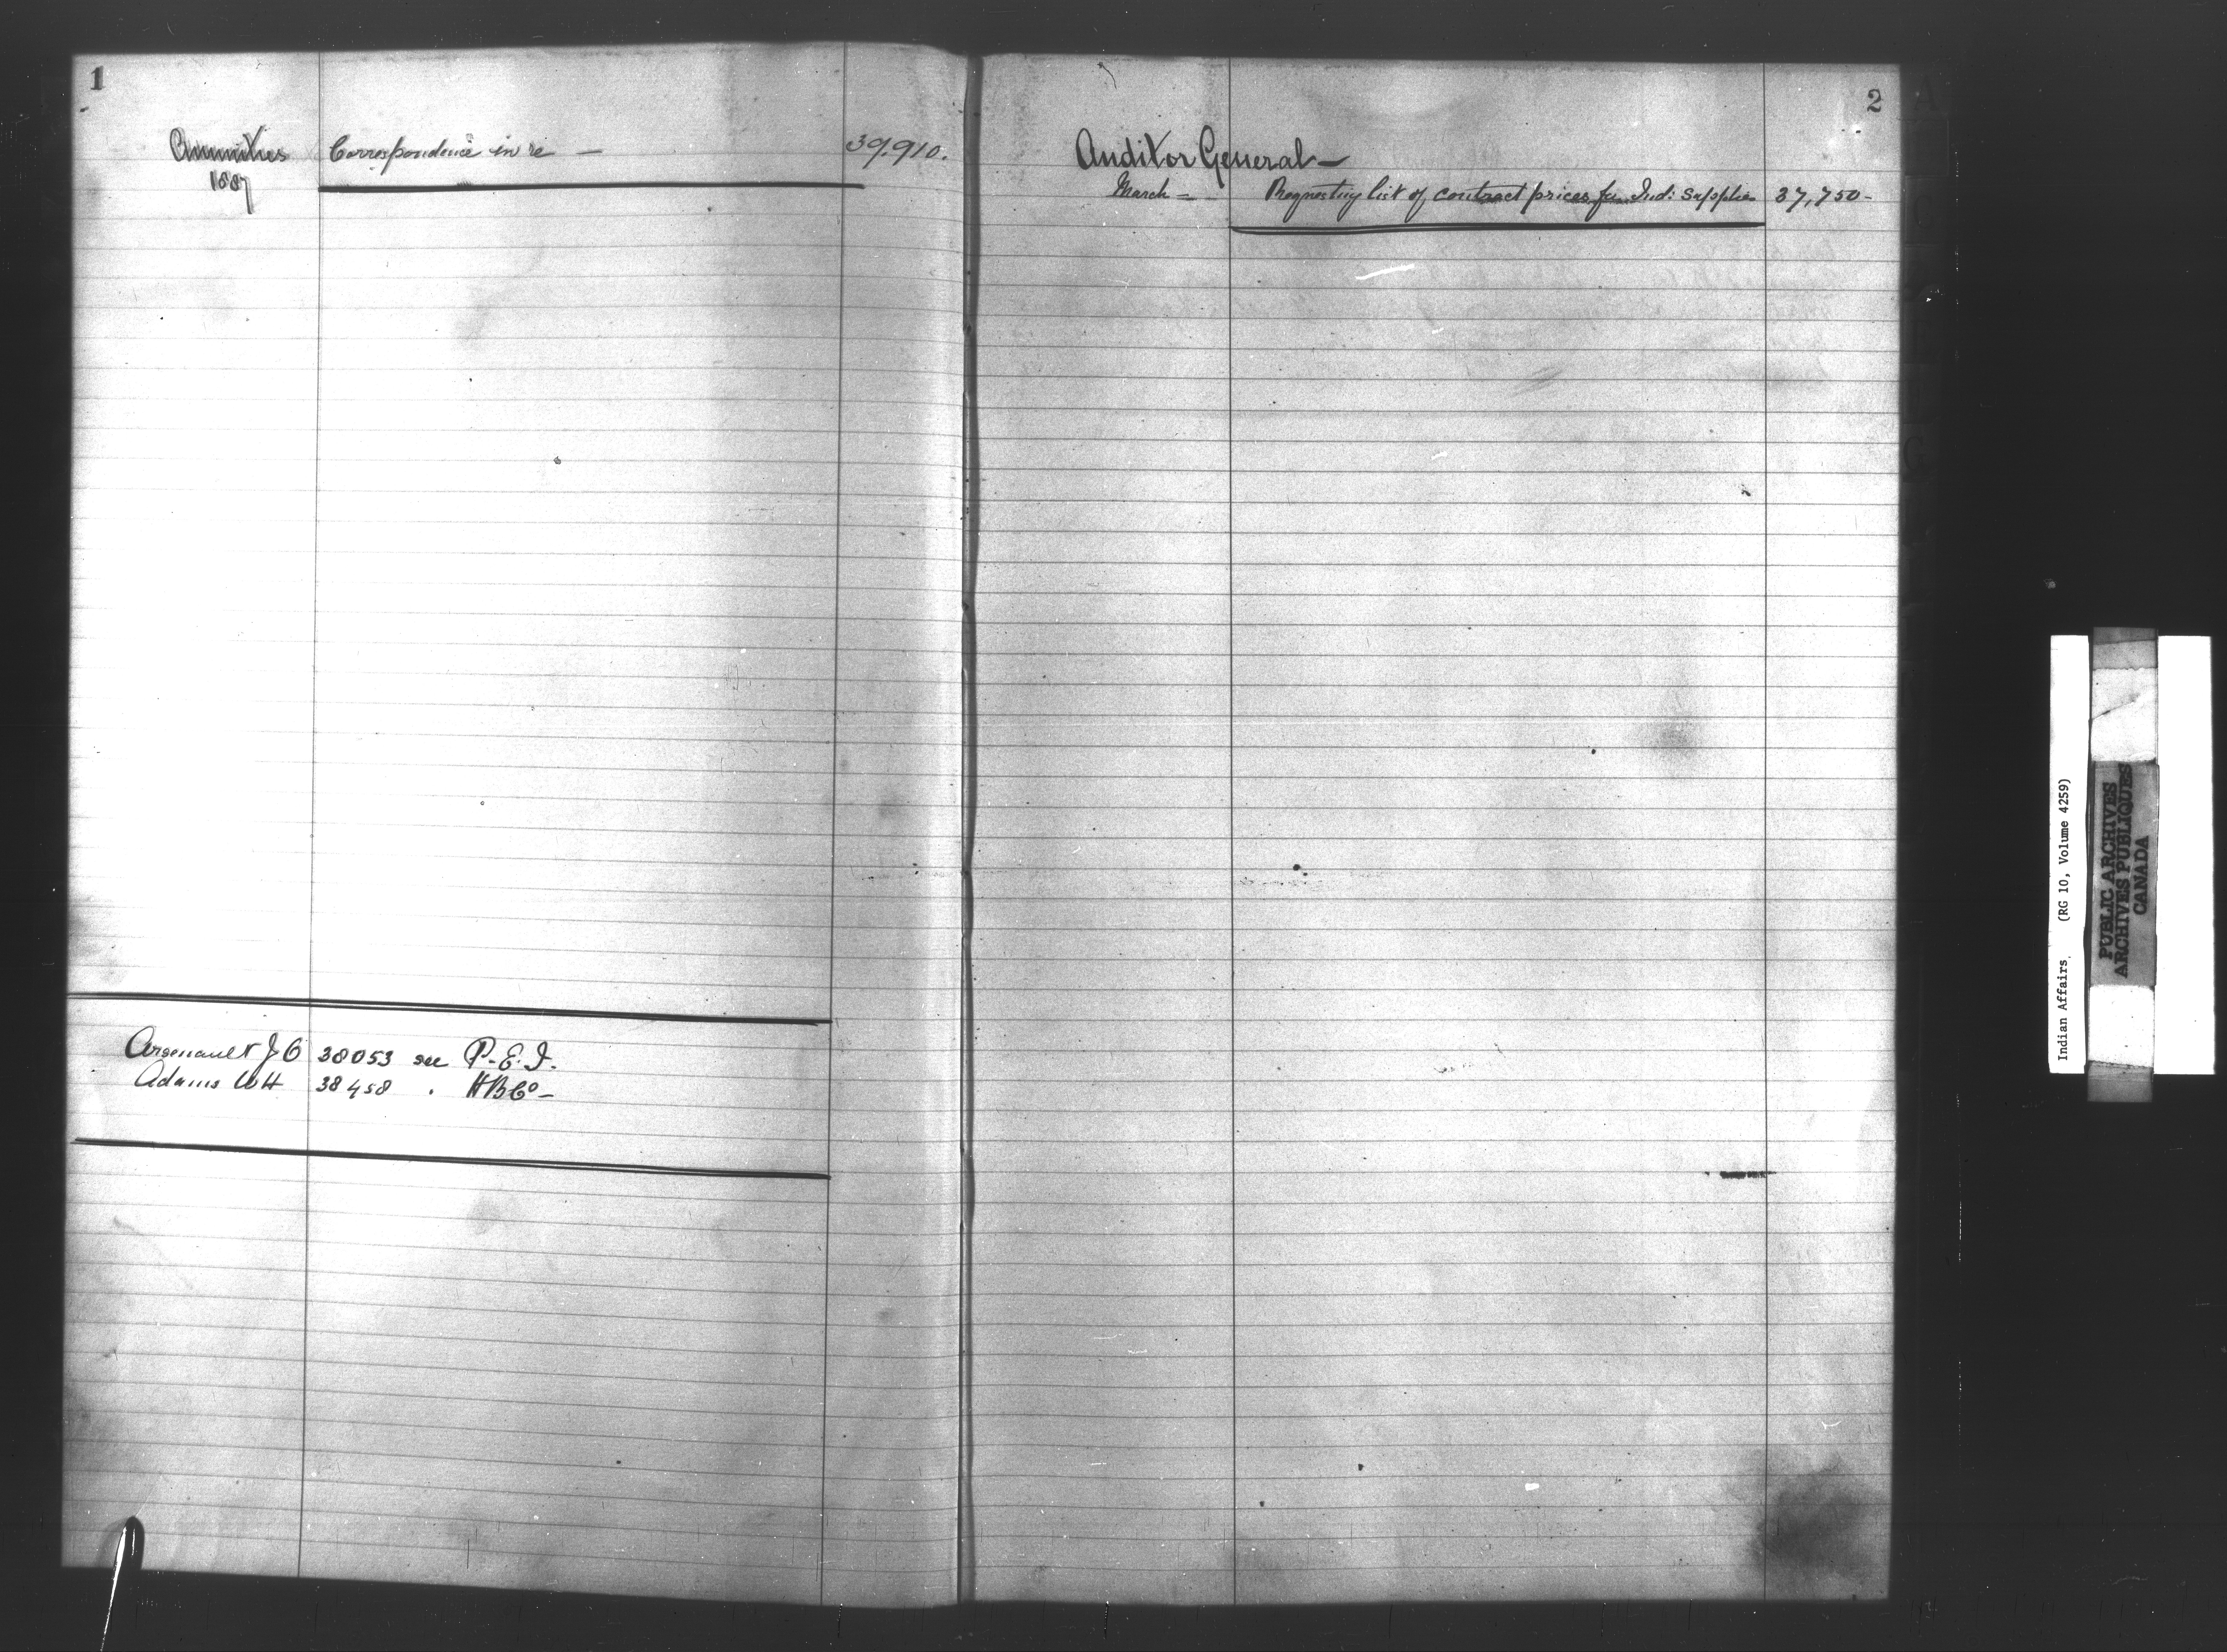 1
Annuities Correspondence in re — 39.910.
1887
Arsenault J O 38053 see P. E. I.
Adams W H 38458 . H B Co —
2
Auditor General —
March = Requesting list of contract prices for Ind: Supplies 37,750 -
Indian Affairs. (RG 10, Volume 4259)
PUBLIC ARCHIVES
ARCHIVES PUBLIQUES
CANADA